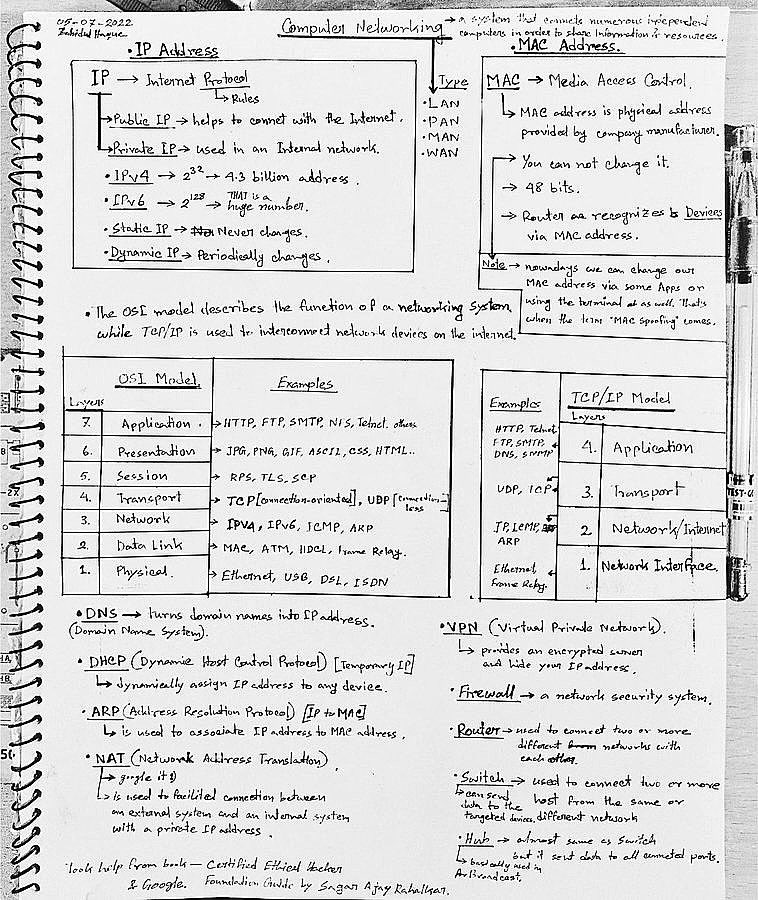 05-07-2022
Zahidul Haque
Computer Networking → a system that connets numerous independent
computers in order to share Information & resources.
• IP Address
IP → Internet Protocol
↳ Rules
→ Public IP → helps to connet with the Internet.
→ Private IP → used in an Internal network.
• IPv4 → 2^32 → 4.3 billion address.
• IPv6 → 2^128 → THAT is a
huge number.
• Static IP → Never changes.
• Dynamic IP → Periodically changes.
Type
• LAN
• PAN
• MAN
• WAN
• MAC Address.
MAC → Media Access Control.
↳ MAC address is physical address
provided by company manufacturer.
→ You can not change it.
→ 48 bits.
→ Router recognizes Devices
via MAC address.
Note → nowadays we can change our
MAC address via some Apps or
using the terminal as well. That's
when the term "MAC spoofing" comes.
• The OSI model describes the function of a networking System.
while TCP/IP is used to interconnect network devices on the internet.
OSI Model Examples
Layers
7. Application. → HTTP, FTP, SMTP, NFS, Telnet. others
6. Presentation → JPG, PNG, GIF, ASCIL, CSS, HTML..
5. Session → RPS, TLS, SCP
4. Transport → TCP [connection-oriented], UDP [connection-
less
3. Network → IPV4, IPv6, ICMP, ARP
2. Data Link → MAC, ATM, HDCL, Frame Relay.
1. Physical. → Ethernet, USB, DSL, ISDN
Examples TCP/IP Model
Layers
HTTP, Telnet
FTP, SMTP, 4. Application
DNS, SNMP
UDP, TCP 3. Transport
IP, ICMP, 2 Network/Internet
ARP
Ethernet 1. Network Interface.
Frame Relay.
• DNS → turns domain names into IP address.
(Domain Name System).
• DHCP (Dynamic Host Control Protocol) [Temporary IP]
↳ dynamically assign IP address to any device.
• ARP (Address Resolution Protocol) [IP to MAC]
↳ is used to associate IP address to MAC address.
• NAT (Network Address Translation).
→ google it :)
↳ is used to connection between
an external system and an internal system
with a private IP address.
took help from book — Certified Ethical Hacker
& Google. Foundation Guide by Sagar Ajay Rahalkar.
• VPN (Virtual Private Network).
↳ provides an encrypted server
and hide your IP address.
• Firewall → a network security system.
• Router → used to connect two or more
different networks with
each other.
• Switch → used to connect two or more
host from the same or
different network
↳ can send
data to the
targeted devices.
• Hub → almost same as Switch
but it sent data to all conneted ports.
↳ basically used in
Broadcast.
TEST-GE